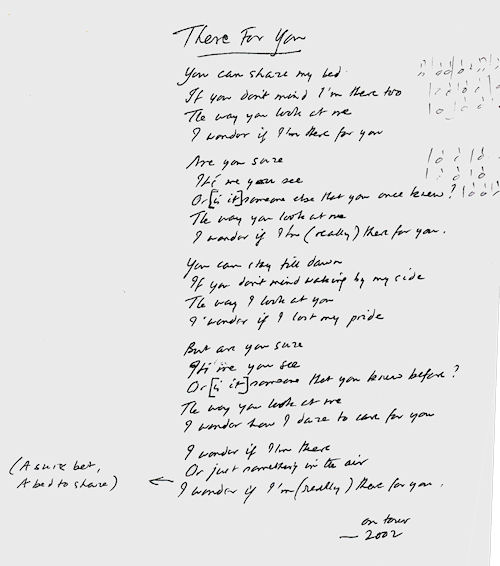 There For You
You can share my bed
If you don't mind I'm there too
The way you look at me
I wonder if I'm there for you
Are you sure
It's me you see
Or [is it] someone else that you once knew?
The way you look at me
I wonder if I'm (really) there for you.
You can stay till dawn
If you don't mind waking by my side
The way I look at you
I wonder if I lost my pride
But are you sure
It's me you see
Or [is it] someone that you knew before?
The way you look at me
I wonder how I dare to care for you
I wonder if I'm there
Or just something in the air
I wonder if I'm (really) there for you.
(A sure bet,
A bed to share)
on tour
— 2002